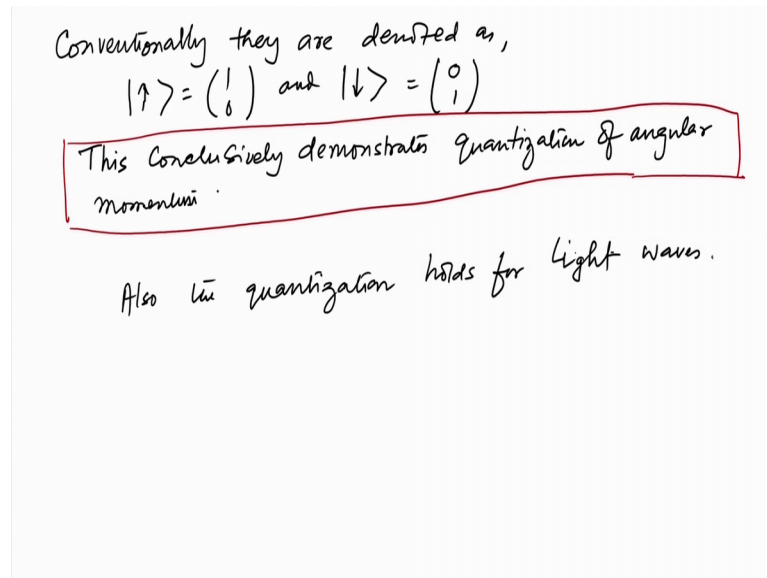 Conventionally they are denoted as,
|↑> = (1 0) and |↓> = (0 1)
This Conclusively demonstrates quantization of angular
momentum.
Also the quantization holds for light waves.